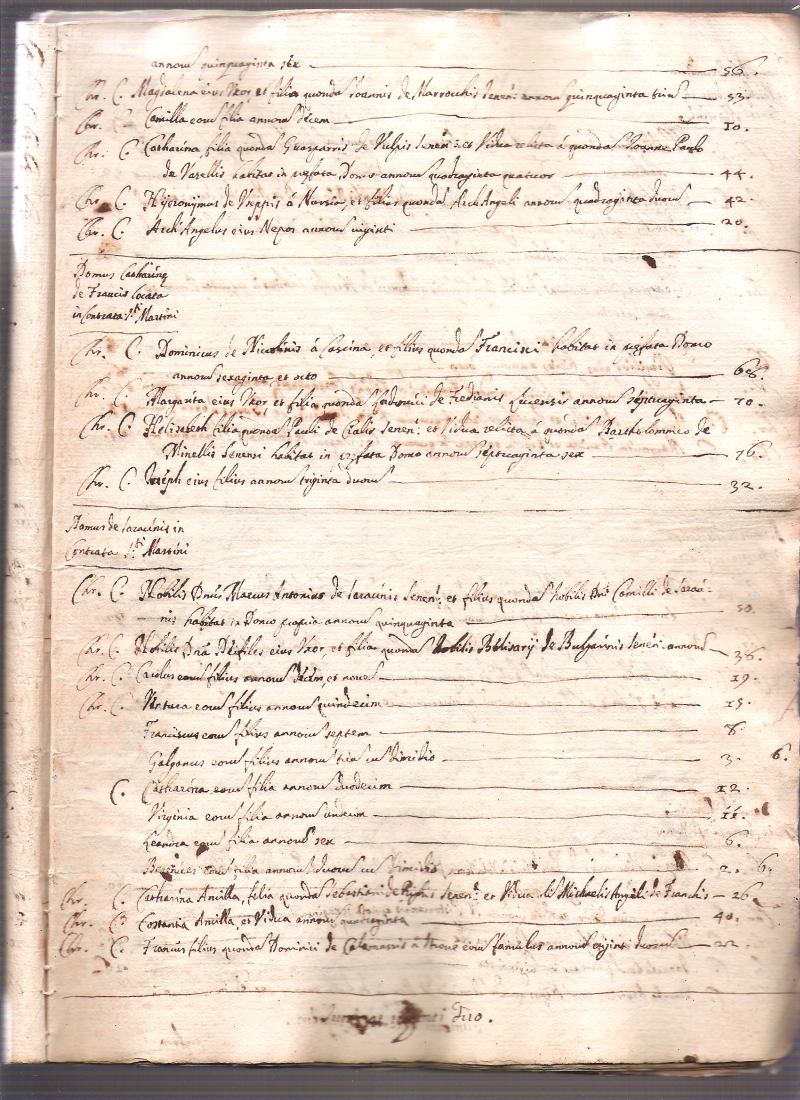 annoru quinquaginta sex 56.
Chr. C. Magdalena eius Uxor et filia quonda Ioannis de Marrocchis Senen: annoru quinquaginta trium 53.
Chr. C. Camilla eoru filia annoru decem 10.
Chr. C. Catharina filia quonda Guasparris de Vulpis Senen: et Vidua relicta à quonda Ioanne Paulo
de Vasellis habitat in Domo annoru quadraginta quatuor 44.
Chr. C. Hyeronymus de à Nursia, et filius quonda ArchAngeli annoru quadraginta duoru 42.
Chr. C. ArchAngelus eius Nepos annoru viginti 20.
Domus Catharine
de Francis locata
in Contrata S.ti Martini
Chr. C. Dominicus de Nicolinis à Cascina, et filius quonda Francisci habitat in Domo
annoru sexaginta, et octo 68.
Chr. C. Margarita eius Uxor, et filia quonda de Fredianis Lucensis annoru septuaginta 70.
Chr. C. Helisabeth filia quonda Pauli de Cialis Senen: et Vidua relicta à quonda Bartholommeo de
Minellis Senensi habitat in Domo annoru septuaginta sex 76.
Chr. C. Ioseph eius filius annoru triginta duoru 32.
Domus de Saracinis in
Contrata S.ti Martini
Chr. C. Nobilis Dnus Marcus Antonius de Saracinis Senen: et filius quonda Nobilis Dni Camilli de Saraci-
nis habitat in Domo propria annoru quinquaginta 50.
Chr. C. Nobilis Dna eius Uxor, et filia quonda Nobilis Bilisarij de Bulgarinis Senen: annoru 38.
Chr. C. Carolus eoru filius annoru decem, et novem 19.
Chr. C. Ventura eoru filius annoru quindecim 15.
Franciscus eoru filius annoru septem 7.
Galganus eoru filius annoru trium cu dimidio 3. 6.
C. Catharina eoru filia annoru duodecim 12.
Virginia eoru filia annoru undecim 11.
Leandra eoru filia annoru sex 6.
Berenices eoru filia annoru duoru cu dimidio 2. 6.
Chr. C. Catharina Ancilla, filia quonda Sebastiani de Senen: et Vidua Michaelis Angeli de Franchis 26
Chr. C. Costantia Ancilla, et Vidua annoru quadraginta 40.
Chr. C. Francus filius quonda Dominici de eoru famulus annoru viginti duoru 22.
viginti Duo.